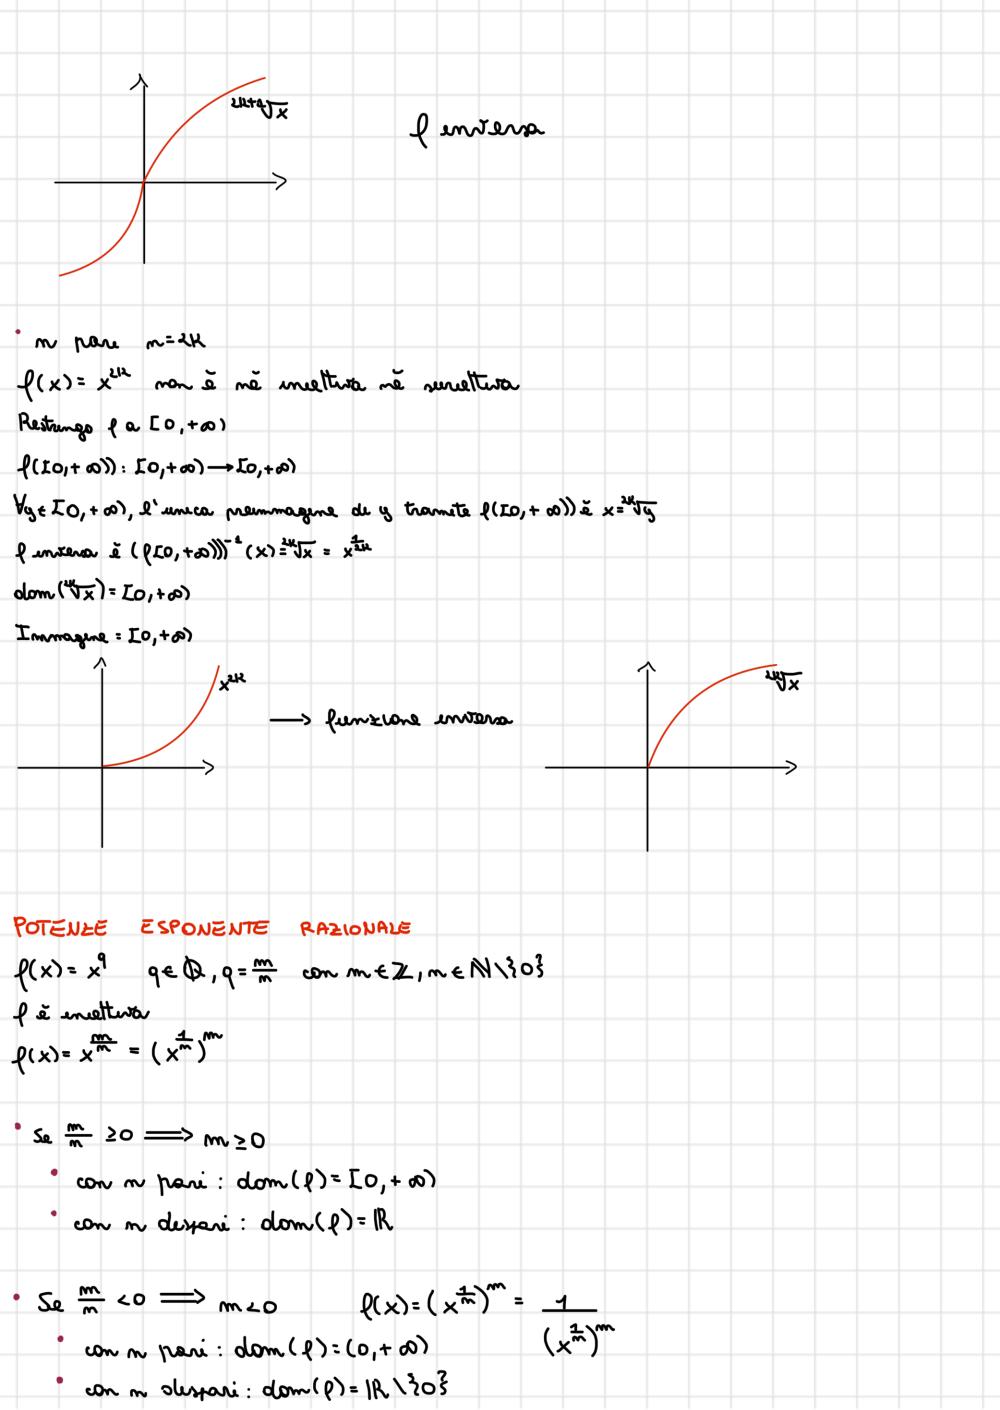 ²ᴷ⁺¹√x
f inversa
• n pari n=2K
f(x) = x²ᴷ non è nè iniettiva nè suriettiva
Restringo f a [0,+∞)
f([0,+∞)): [0,+∞) → [0,+∞)
∀y∈[0,+∞), l'unica preimmagine di y tramite f([0,+∞)) è x=²ᴷ√y
f inversa è (f[0,+∞)))⁻¹(x)=²ᴷ√x = x^(1/2K)
dom(²ᴷ√x) = [0,+∞)
Immagine = [0,+∞)
x²ᴷ
→ funzione inversa
²ᴷ√x
POTENZE ESPONENTE RAZIONALE
f(x) = x^q q∈ℚ, q = m/n con m∈ℤ, n∈ℕ\{0}
f è iniettiva
f(x) = x^(m/n) = (x^(1/n))^m
• Se m/n ≥0 ⟹ m≥0
• con n pari : dom(f) = [0,+∞)
• con n dispari : dom(f) = ℝ
• Se m/n <0 ⟹ m<0 f(x) = (x^(1/n))^m = 1/(x^(1/n))^m
• con n pari : dom(f) = (0,+∞)
• con n dispari : dom(f) = ℝ\{0}